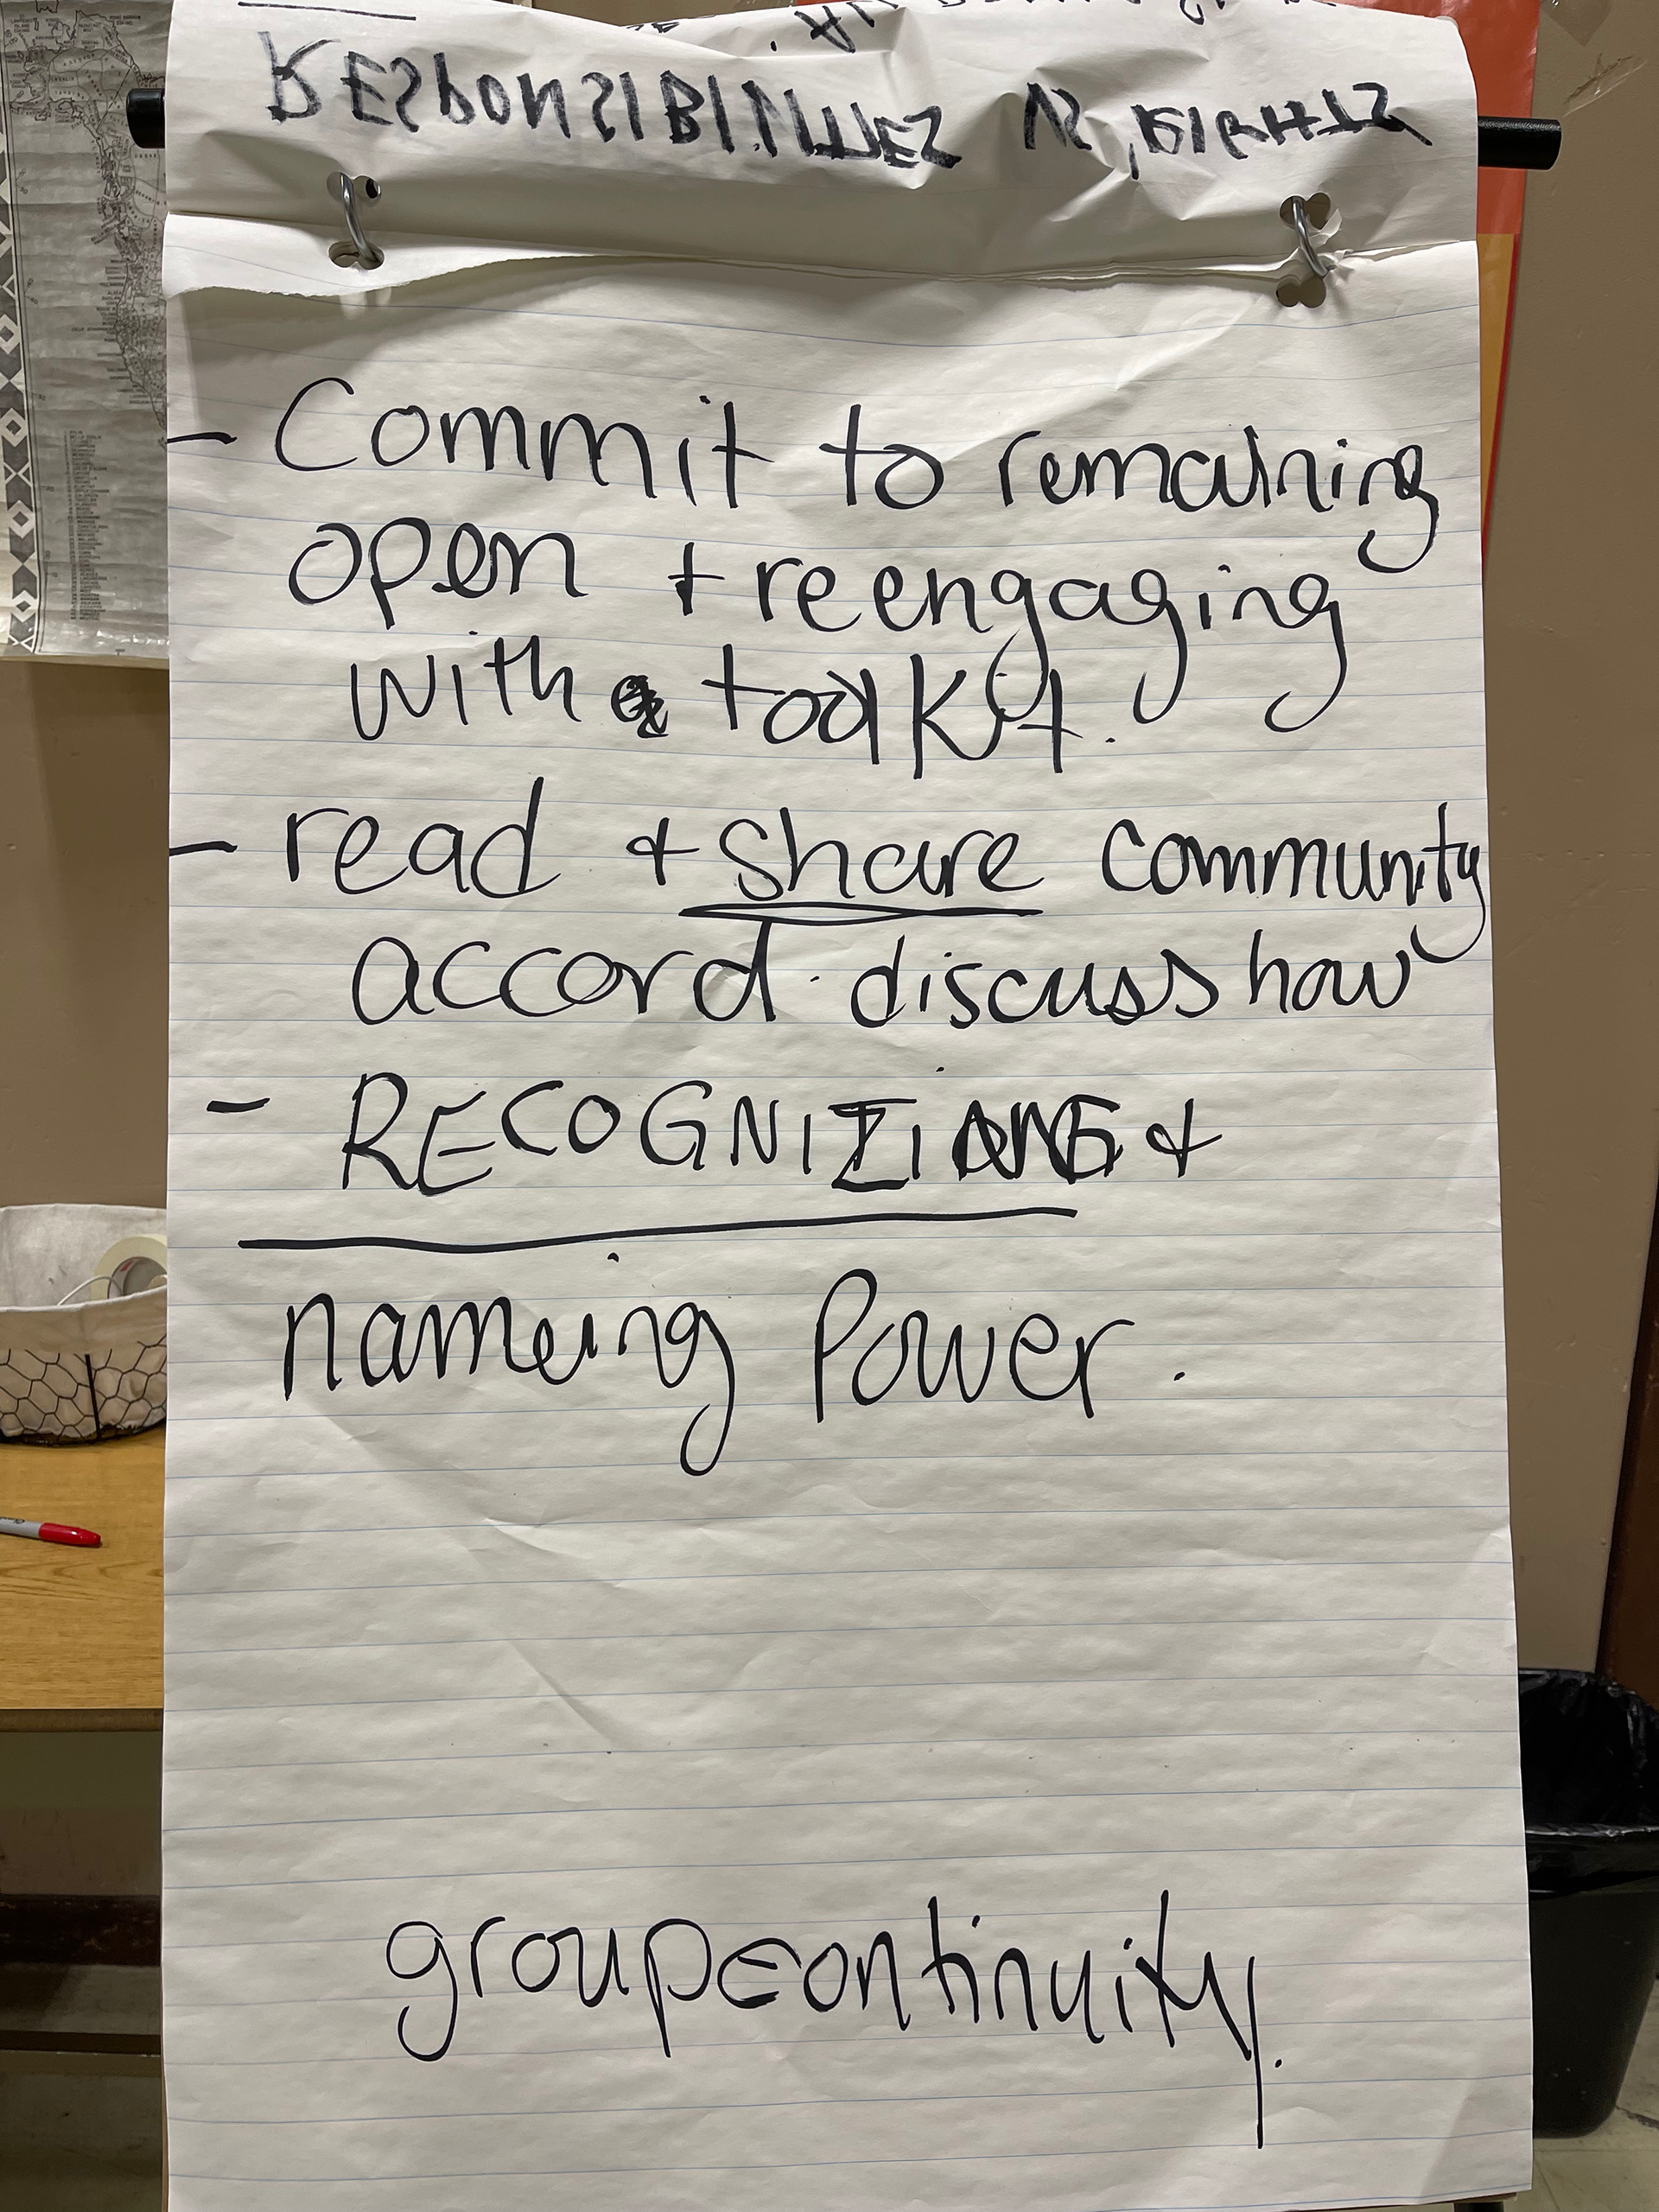 RESPONSIBILITIES VS. RIGHTS
- Commit to remaining
open + reengaging
with toolkit.
- read + share community
accord. discuss how
- RECOGNIZING +
nameing Power.
group continuity.